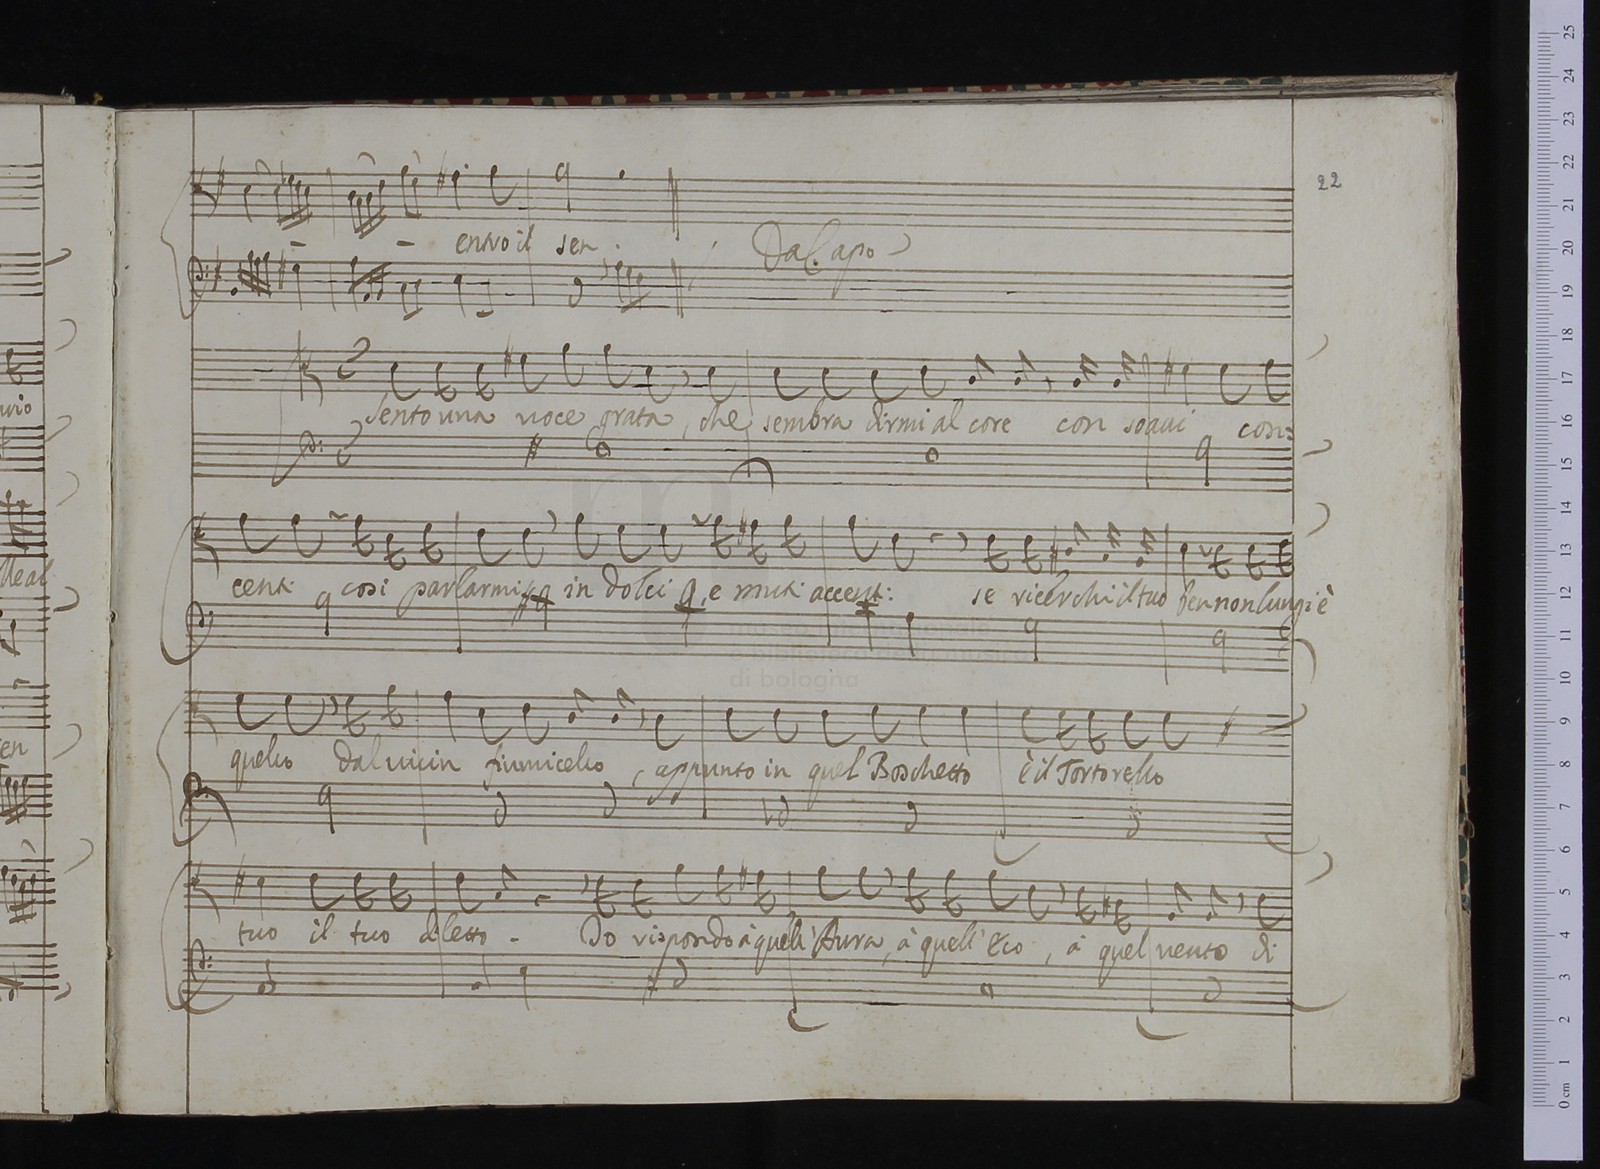 22
entro il sen.
Da Capo
Sento una voce grata, che sembra dirmi al core con soavi con:
centi cosi parlarmi in dolci, e muti accenti: se ricerchi il tuo ben non lungi è
quello dal vicin fiumicello, appunto in quel Boschetto è il Tortorello
tuo il tuo diletto. Io rispondo à quell'Aura, à quell'Eco, à quel vento di
museo internazionale
e biblioteca della musica
di bologna
25
24
23
22
21
20
19
18
17
16
15
14
13
12
11
10
9
8
7
6
5
4
3
2
1
0 cm